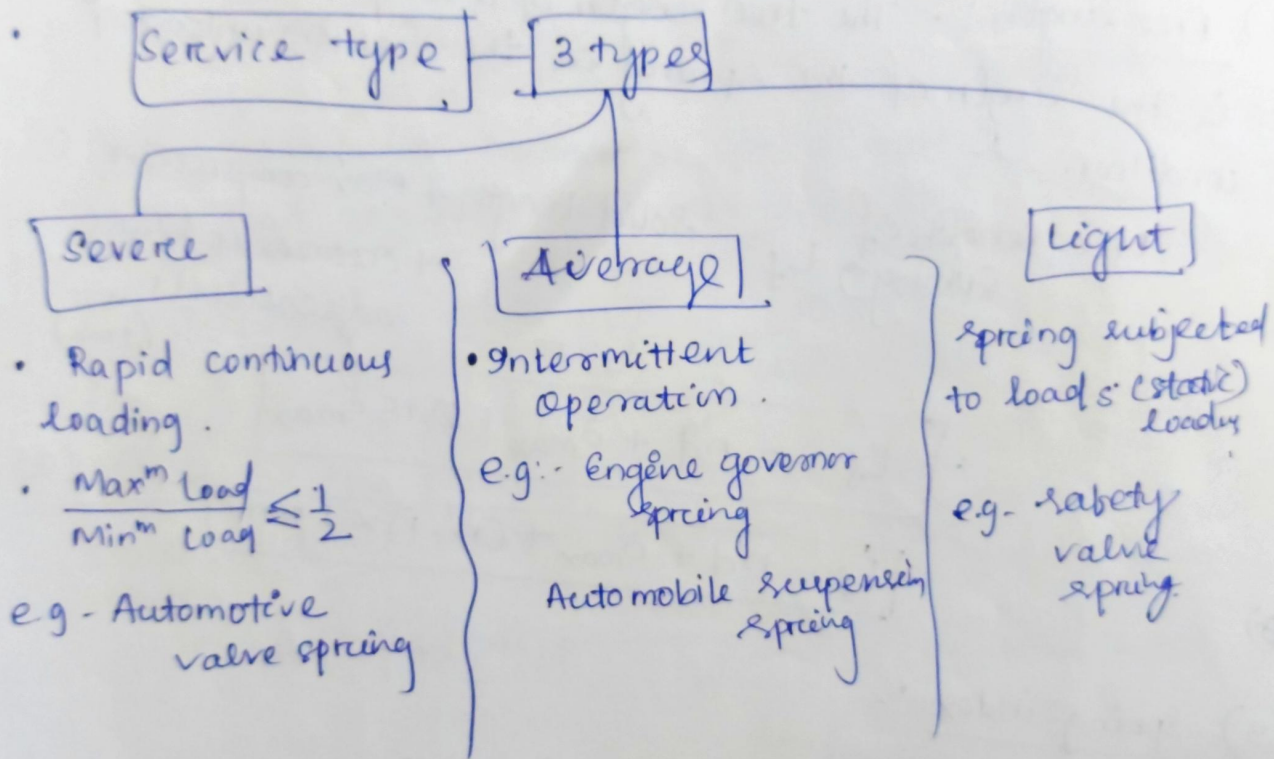 Service type
3 types
Severe
• Rapid continuous
loading.
• Maxᵐ Load / Minᵐ Load ≤ 1/2
e.g - Automotive
valve spring
Average
• Intermittent
operation.
e.g:- Engine governor
spring
Automobile suspension
spring
Light
spring subjected
to loads (static)
loads
e.g- safety
valve
spring.